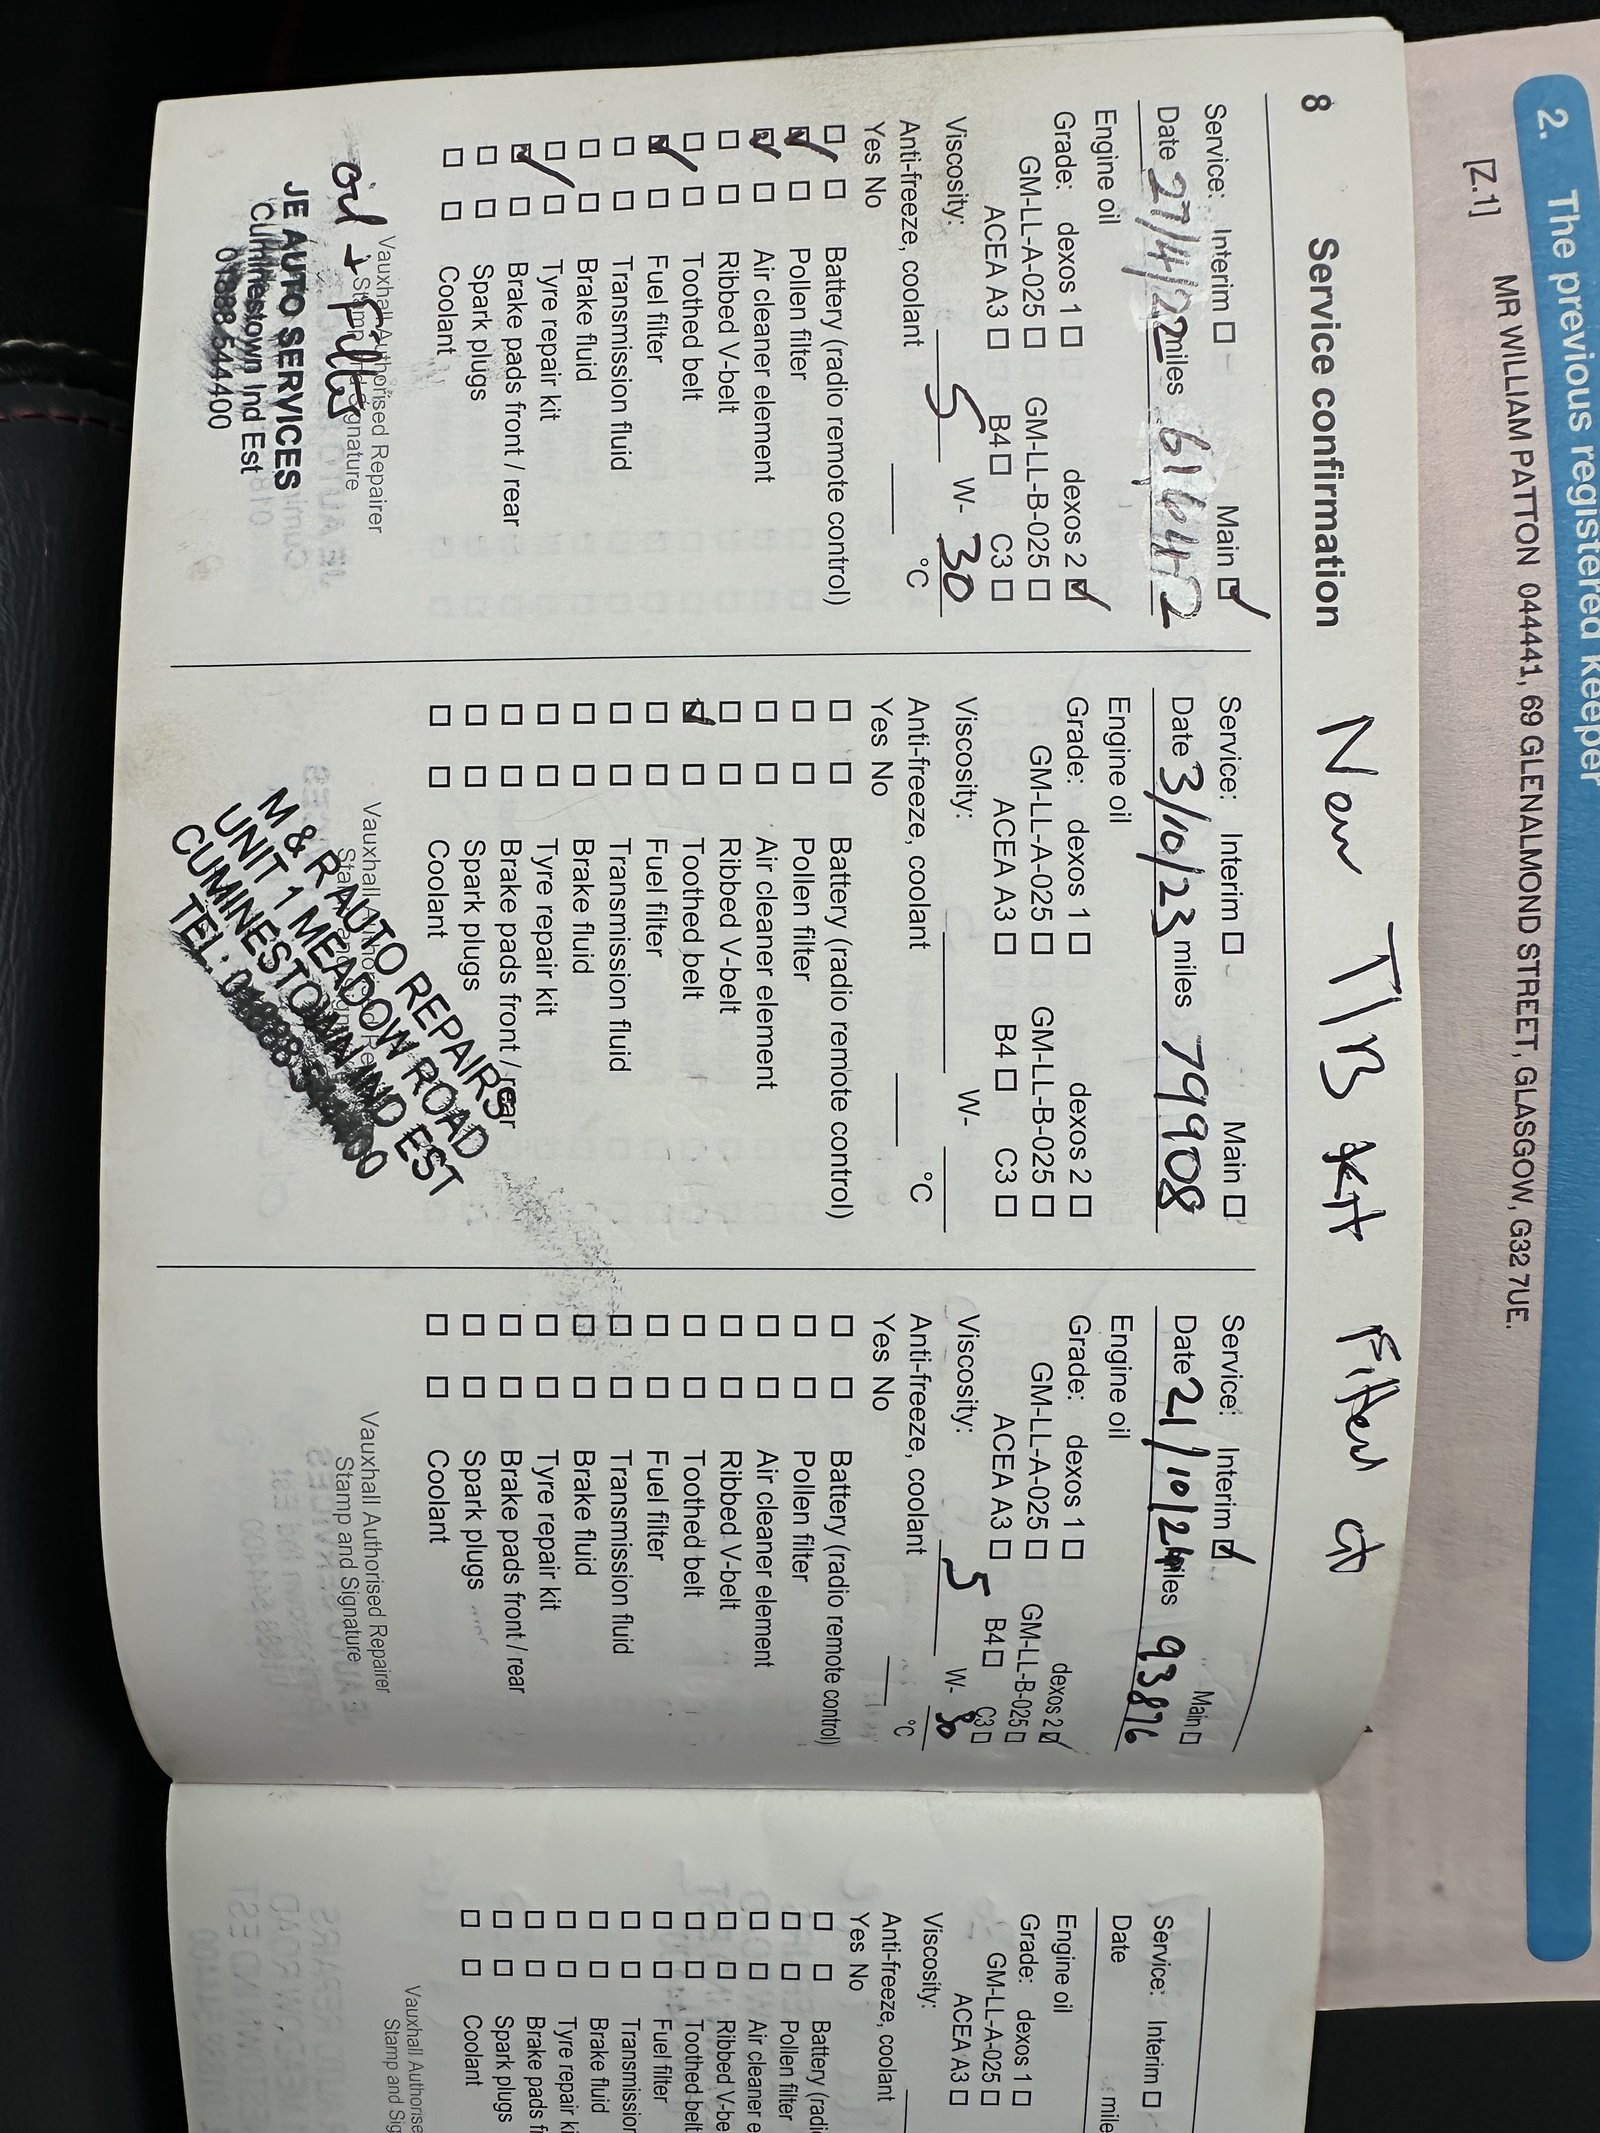 2. The previous registered keeper
[Z.1]
MR WILLIAM PATTON 044441, 69 GLENALMOND STREET, GLASGOW, G32 7UE.
8 Service confirmation
New T/B Kit Fitted at
Service: Interim Main
Date 27/4/22 miles 61642
Engine oil
Grade: dexos 1 dexos 2
GM-LL-A-025 GM-LL-B-025
ACEA A3 B4 C3
Viscosity: 5 W- 30
Anti-freeze, coolant °C
Yes No
Battery (radio remote control)
Pollen filter
Air cleaner element
Ribbed V-belt
Toothed belt
Fuel filter
Transmission fluid
Brake fluid
Tyre repair kit
Brake pads front / rear
Spark plugs
Coolant
Vauxhall Authorised Repairer
Stamp Signature
oil + filter
JE AUTO SERVICES
Cuminestown Ind Est
01888 544400
Service: Interim Main
Date 3/10/23 miles 79908
Engine oil
Grade: dexos 1 dexos 2
GM-LL-A-025 GM-LL-B-025
ACEA A3 B4 C3
Viscosity: W-
Anti-freeze, coolant °C
Yes No
Battery (radio remote control)
Pollen filter
Air cleaner element
Ribbed V-belt
Toothed belt
Fuel filter
Transmission fluid
Brake fluid
Tyre repair kit
Brake pads front / rear
Spark plugs
Coolant
Vauxhall
M & R AUTO REPAIRS
UNIT 1 MEADOW ROAD
CUMINESTOWN IND EST
TEL:
Service: Interim Main
Date 21/10/24 miles 93876
Engine oil
Grade: dexos 1 dexos 2
GM-LL-A-025 GM-LL-B-025
ACEA A3 B4 C3
Viscosity: 5 W- 30
Anti-freeze, coolant °C
Yes No
Battery (radio remote control)
Pollen filter
Air cleaner element
Ribbed V-belt
Toothed belt
Fuel filter
Transmission fluid
Brake fluid
Tyre repair kit
Brake pads front / rear
Spark plugs
Coolant
Vauxhall Authorised Repairer
Stamp and Signature
Service: Interim
Date mile
Engine oil
Grade: dexos 1
GM-LL-A-025
ACEA A3
Viscosity:
Anti-freeze, coolant
Yes No
Battery (radi
Pollen filter
Air cleaner e
Ribbed V-be
Toothed belt
Fuel filter
Transmission
Brake fluid
Tyre repair ki
Brake pads f
Spark plugs
Coolant
Vauxhall Authorise
Stamp and Sig